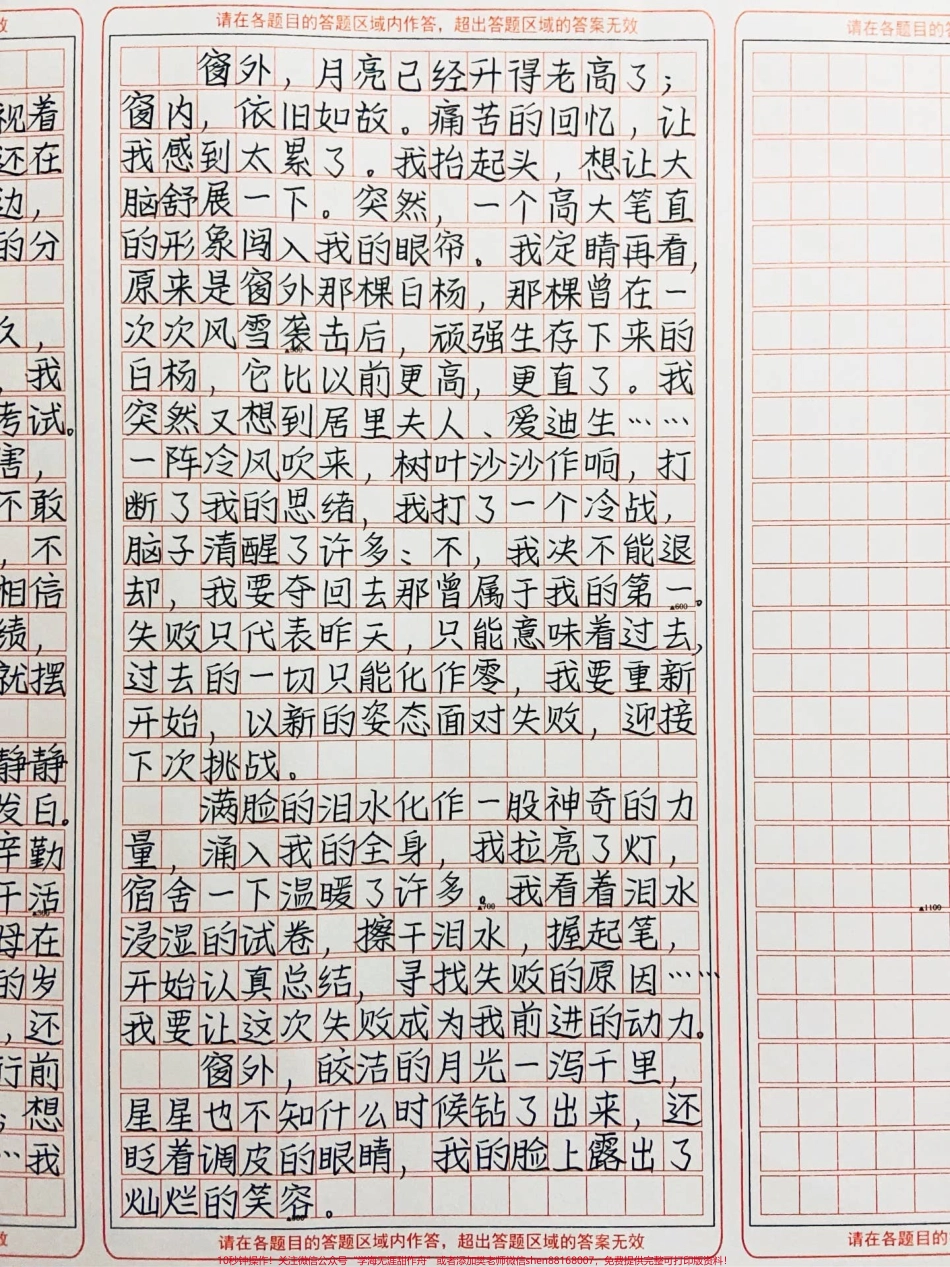 效
视着
还在
边，
的分
久，
，我
考试。
害，
不敢
，不
相信
绩，
就摆
静静
发白。
辛勤
干活
母在
的岁
，还
行前
，想
…我
效
请在各题目的答题区域内作答，超出答题区域的答案无效
窗外，月亮已经升得老高了；
窗内，依旧如故。痛苦的回忆，让
我感到太累了。我抬起头，想让大
脑舒展一下。突然，一个高大笔直
的形象闯入我的眼帘。我定睛再看，
原来是窗外那棵白杨，那棵曾在一
次次风雪袭击后，顽强生存下来的
白杨，它比以前更高，更直了。我
突然又想到居里夫人、爱迪生……
一阵冷风吹来，树叶沙沙作响，打
断了我的思绪，我打了一个冷战，
脑子清醒了许多：不，我决不能退
却，我要夺回去那曾属于我的第一。
▲600
失败只代表昨天，只能意味着过去，
过去的一切只能化作零，我要重新
开始，以新的姿态面对失败，迎接
下次挑战。
满脸的泪水化作一股神奇的力
量，涌入我的全身，我拉亮了灯，
宿舍一下温暖了许多。我看着泪水
▲700
浸湿的试卷，擦干泪水，握起笔，
开始认真总结，寻找失败的原因……
我要让这次失败成为我前进的动力。
窗外，皎洁的月光一泻千里，
星星也不知什么时候钻了出来，还
眨着调皮的眼睛，我的脸上露出了
灿烂的笑容。
请在各题目的答题区域内作答，超出答题区域的答案无效
请在各题目的答
▲1100
请在各题目的
10秒钟操作！关注微信公众号“学海无涯甜作舟”或者添加奥老师微信shen88168007，免费提供完整可打印版资料！